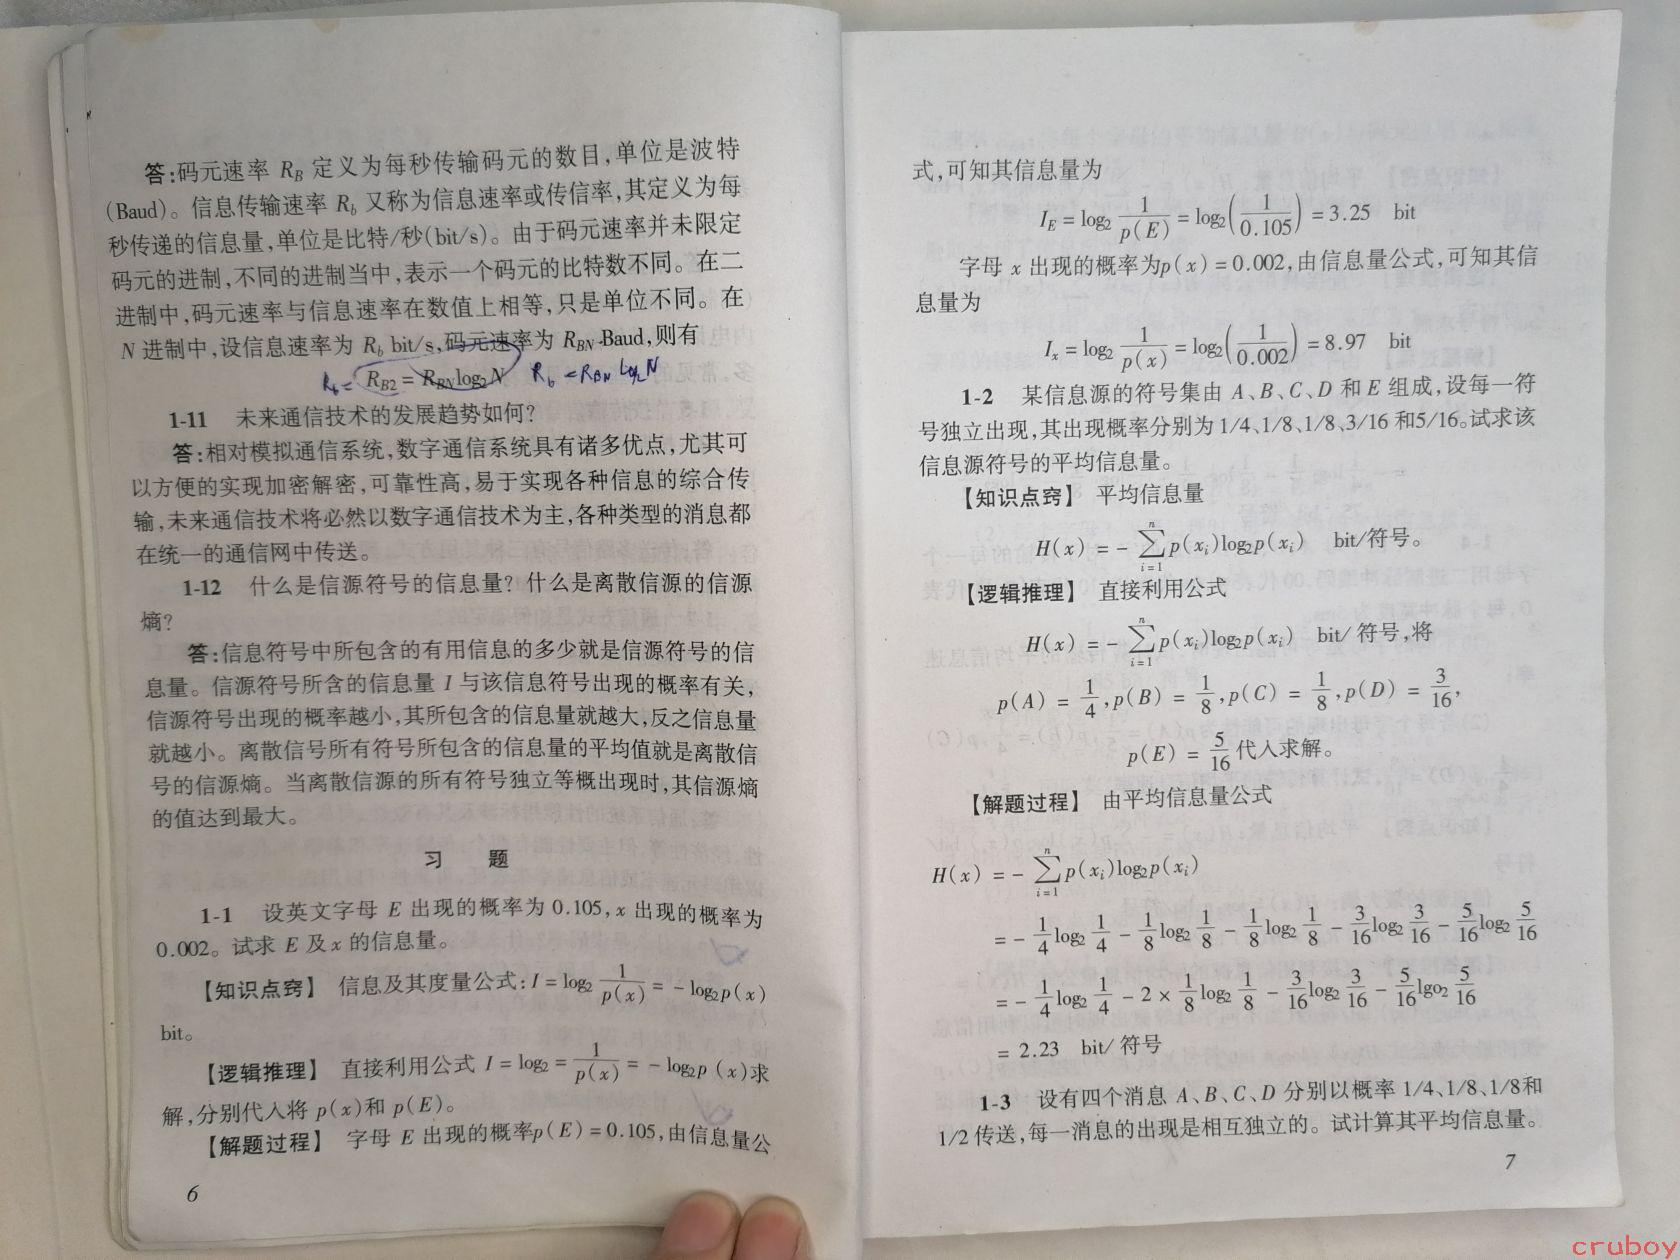 答:码元速率 R_B 定义为每秒传输码元的数目,单位是波特
(Baud)。信息传输速率 R_b 又称为信息速率或传信率,其定义为每
秒传递的信息量,单位是比特/秒(bit/s)。由于码元速率并未限定
码元的进制,不同的进制当中,表示一个码元的比特数不同。在二
进制中,码元速率与信息速率在数值上相等,只是单位不同。在
N 进制中,设信息速率为 R_b bit/s,码元速率为 R_BN Baud,则有
R_b = R_B2 = R_BN log₂N R_b = R_BN log₂N
1-11 未来通信技术的发展趋势如何?
答:相对模拟通信系统,数字通信系统具有诸多优点,尤其可
以方便的实现加密解密,可靠性高,易于实现各种信息的综合传
输,未来通信技术将必然以数字通信技术为主,各种类型的消息都
在统一的通信网中传送。
1-12 什么是信源符号的信息量?什么是离散信源的信源
熵?
答:信息符号中所包含的有用信息的多少就是信源符号的信
息量。信源符号所含的信息量 I 与该信息符号出现的概率有关,
信源符号出现的概率越小,其所包含的信息量就越大,反之信息量
就越小。离散信号所有符号所包含的信息量的平均值就是离散信
号的信源熵。当离散信源的所有符号独立等概出现时,其信源熵
的值达到最大。
习 题
1-1 设英文字母 E 出现的概率为 0.105,x 出现的概率为
0.002。试求 E 及 x 的信息量。
【知识点窍】 信息及其度量公式:I = log₂ 1/p(x) = − log₂p(x)
bit。
【逻辑推理】 直接利用公式 I = log₂ = 1/p(x) = − log₂p (x)求
解,分别代入将 p(x)和 p(E)。
【解题过程】 字母 E 出现的概率p(E) = 0.105,由信息量公
6
式,可知其信息量为
I_E = log₂ 1/p(E) = log₂(1/0.105) = 3.25 bit
字母 x 出现的概率为p(x) = 0.002,由信息量公式,可知其信
息量为
I_x = log₂ 1/p(x) = log₂(1/0.002) = 8.97 bit
1-2 某信息源的符号集由 A、B、C、D 和 E 组成,设每一符
号独立出现,其出现概率分别为 1/4、1/8、1/8、3/16 和5/16。试求该
信息源符号的平均信息量。
【知识点窍】 平均信息量
H(x) = − ∑_{i=1}^{n} p(x_i)log₂p(x_i) bit/符号。
【逻辑推理】 直接利用公式
H(x) = − ∑_{i=1}^{n} p(x_i)log₂p(x_i) bit/ 符号,将
p(A) = 1/4,p(B) = 1/8,p(C) = 1/8,p(D) = 3/16,
p(E) = 5/16 代入求解。
【解题过程】 由平均信息量公式
H(x) = − ∑_{i=1}^{n} p(x_i)log₂p(x_i)
= − 1/4 log₂ 1/4 − 1/8 log₂ 1/8 − 1/8 log₂ 1/8 − 3/16 log₂ 3/16 − 5/16 log₂ 5/16
= − 1/4 log₂ 1/4 − 2 × 1/8 log₂ 1/8 − 3/16 log₂ 3/16 − 5/16 lgo₂ 5/16
= 2.23 bit/ 符号
1-3 设有四个消息 A、B、C、D 分别以概率 1/4、1/8、1/8和
1/2 传送,每一消息的出现是相互独立的。试计算其平均信息量。
7
cruboy